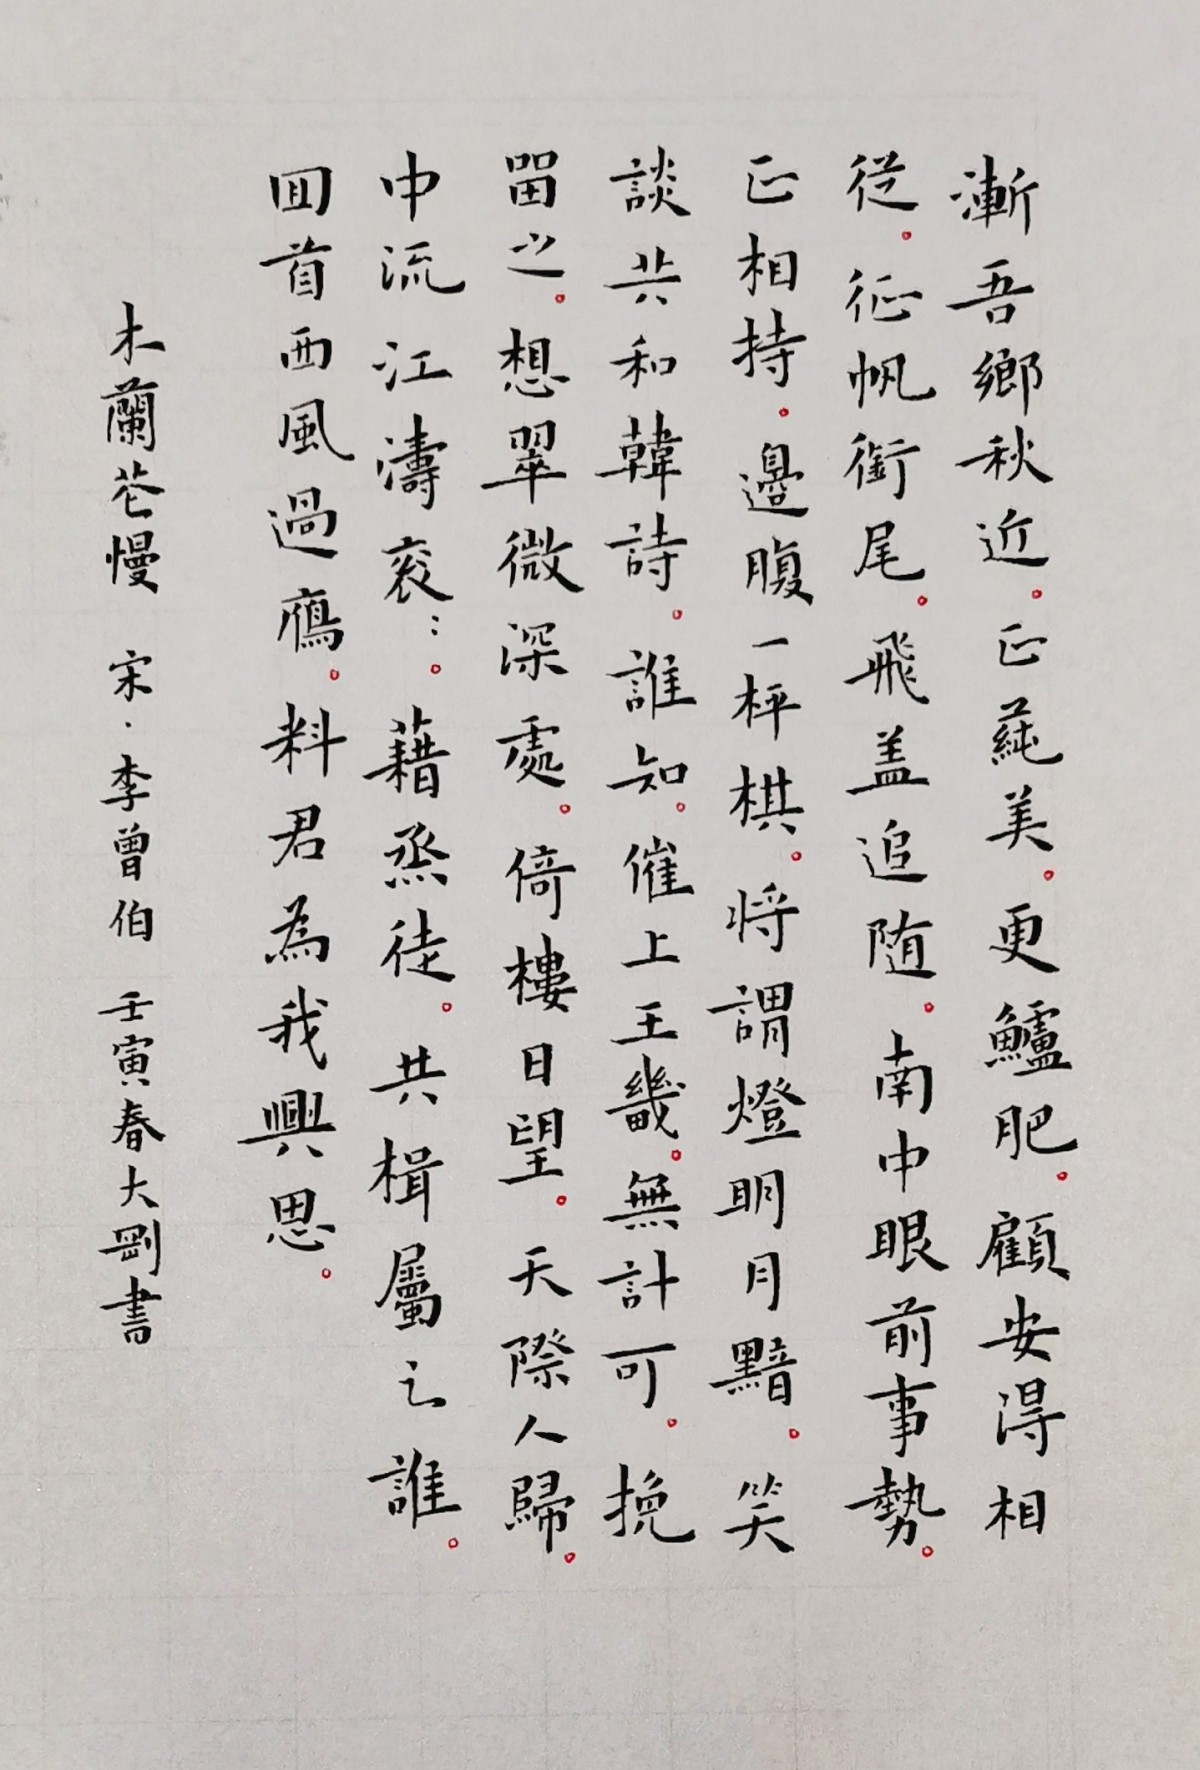 漸吾鄉秋近。正蓴美。更鱸肥。顧安得相
從。征帆銜尾。飛蓋追随。南中眼前事勢。
正相持。邊腹一枰棋。将謂燈明月黯。笑
談共和韓詩。誰知。催上王畿。無計可。挽
留之。想翠微深處。倚樓日望。天際人歸。
中流江濤衮：。藉烝徒。共楫屬之誰。
回首西風過鴈。料君為我興思。
木蘭花慢 宋·李曾伯 壬寅春大剛書